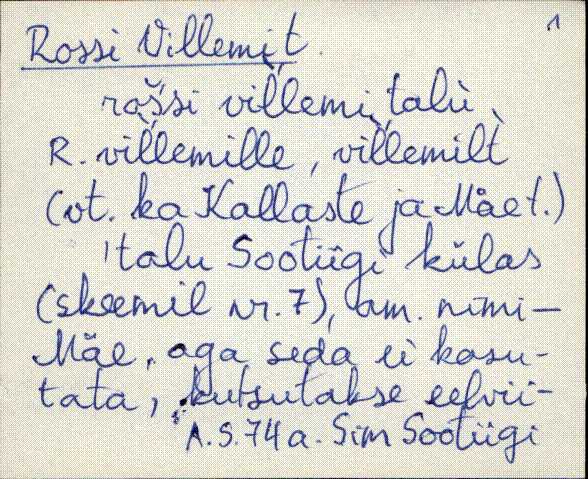 1
Rossi Villemi t.
rošsi villemi talù
R. villemille, villemilt
(vt. ka Kallaste ja Mäe t.)
'talu Sootiigi külas
(skeemil nr. 7), am. nimi—
Mäe, aga seda ei kasu-
tata, kutsutakse eelvii-
A.S. 74 a. Sim Sootiigi